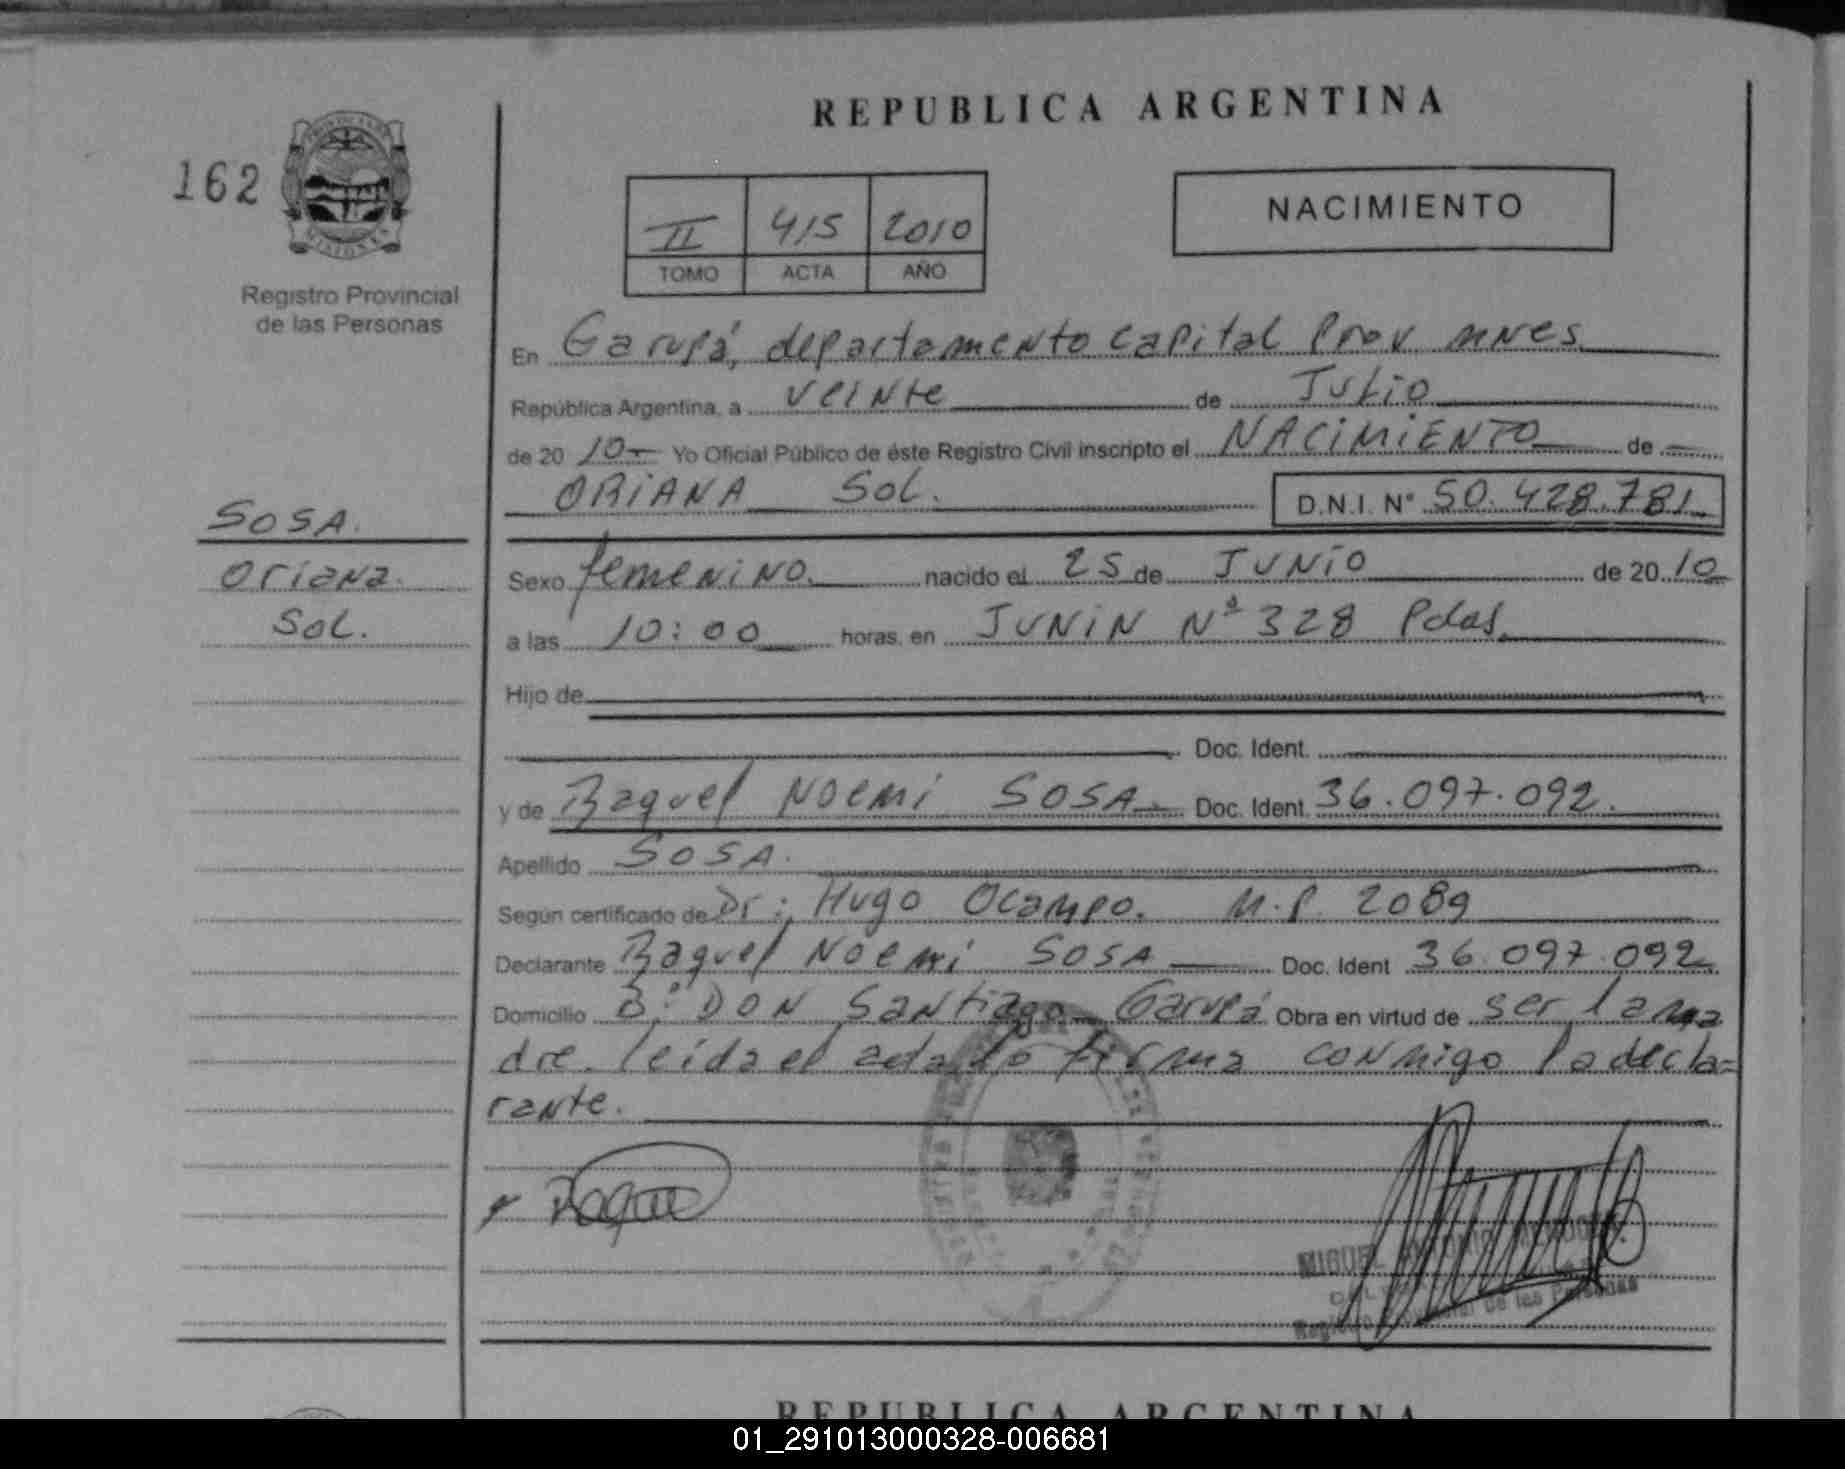 REPUBLICA ARGENTINA
162
MISIONES
Registro Provincial
de las Personas
II 415 2010
TOMO ACTA AÑO
NACIMIENTO
En Garupá, departamento capital Prov mnes.
República Argentina, a veinte de Julio
de 20 10 Yo Oficial Público de éste Registro Civil inscripto el NACIMIENTO de
ORIANA Sol.
D.N.I. N° 50.428.781
SOSA.
Oriana
Sol.
Sexo femenino. nacido el 25 de JUNIO de 20 10
a las 10:00 horas, en JUNIN Nº 328 Pdas.
Hijo de
Doc. Ident.
y de Raquel Noemi SOSA Doc. Ident. 36.097.092.
Apellido SOSA.
Según certificado de Dr: Hugo Ocampo. M.P. 2089
Declarante Raquel Noemi SOSA Doc. Ident 36.097.092
Domicilio B° DON Santiago Garupá Obra en virtud de ser la ma
dre. leída el acta lo firma conmigo la decla=
rante.
Raquel
MIGUEL ANTONIO
de las Personas
REPUBLICA ARGENTINA
01_291013000328-006681